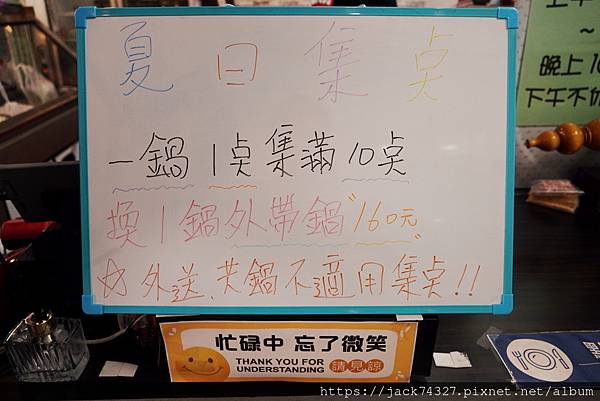 夏日集点
一鍋1点集滿10点
換1鍋外帶鍋"160元"
☆外送、共鍋不適用集点!!
忙碌中 忘了微笑
THANK YOU FOR
UNDERSTANDING
請見諒
晚上10
下午不休
https://jack74327.pixnet.net/album